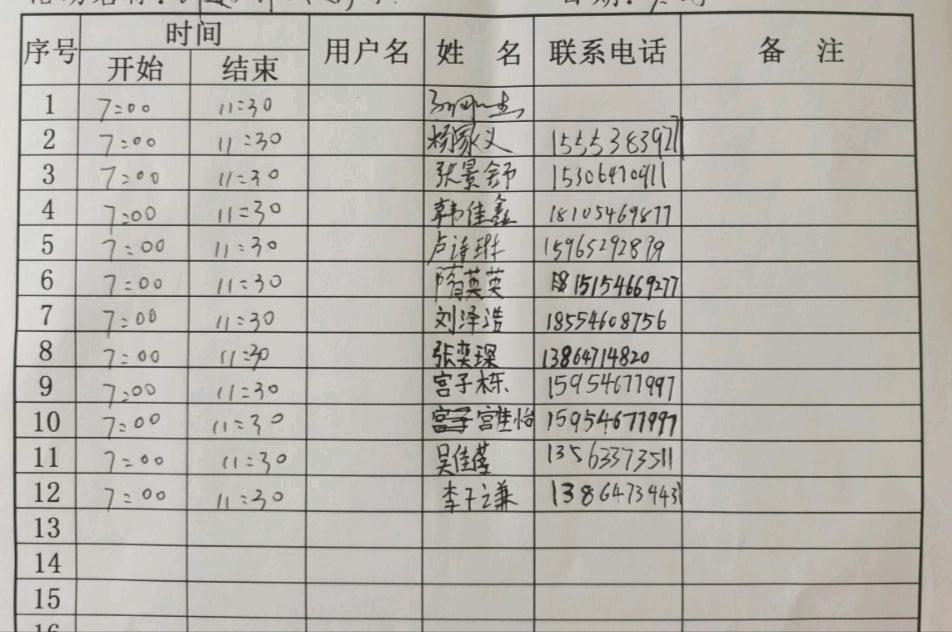 序号 时间 用户名 姓 名 联系电话 备 注
开始 结束
1 7:00 11:30
2 7:00 11:30 杨家义
3 7:00 11:30 张景舒 15306470911
4 7:00 11:30 韩佳鑫 18105469877
5 7:00 11:30 卢诗琳 15965292879
6 7:00 11:30 隋英英 15154669277
7 7:00 11:30 刘泽浩 18554608756
8 7:00 11:30 张奕琛 13864714820
9 7:00 11:30 宫子栋 15954677997
10 7:00 11:30 宫佳怡 15954677997
11 7:00 11:30 吴佳蓓 13563373511
12 7:00 11:30 李子谦 13864734431
13
14
15
16